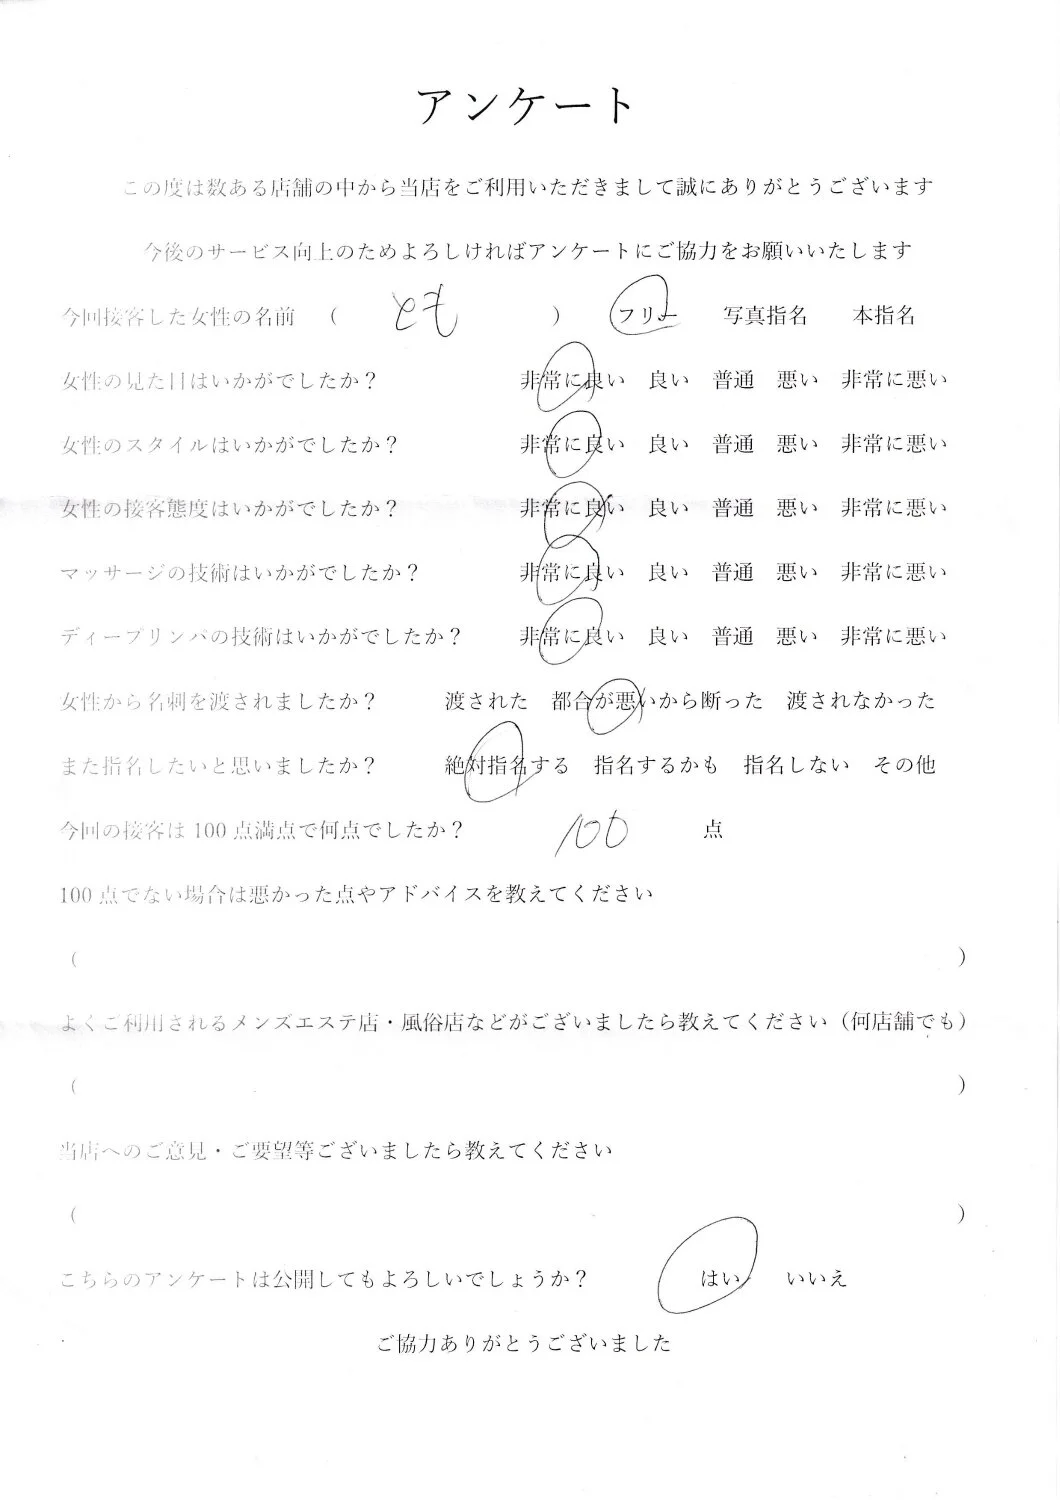 アンケート
この度は数ある店舗の中から当店をご利用いただきまして誠にありがとうございます
今後のサービス向上のためよろしければアンケートにご協力をお願いいたします
今回接客した女性の名前 （ とも ） フリー 写真指名 本指名
女性の見た目はいかがでしたか？ 非常に良い 良い 普通 悪い 非常に悪い
女性のスタイルはいかがでしたか？ 非常に良い 良い 普通 悪い 非常に悪い
女性の接客態度はいかがでしたか？ 非常に良い 良い 普通 悪い 非常に悪い
マッサージの技術はいかがでしたか？ 非常に良い 良い 普通 悪い 非常に悪い
ディープリンパの技術はいかがでしたか？ 非常に良い 良い 普通 悪い 非常に悪い
女性から名刺を渡されましたか？ 渡された 都合が悪いから断った 渡されなかった
また指名したいと思いましたか？ 絶対指名する 指名するかも 指名しない その他
今回の接客は 100 点満点で何点でしたか？ 100 点
100 点でない場合は悪かった点やアドバイスを教えてください
（ ）
よくご利用されるメンズエステ店・風俗店などがございましたら教えてください（何店舗でも）
（ ）
当店へのご意見・ご要望等ございましたら教えてください
（ ）
こちらのアンケートは公開してもよろしいでしょうか？ はい いいえ
ご協力ありがとうございました